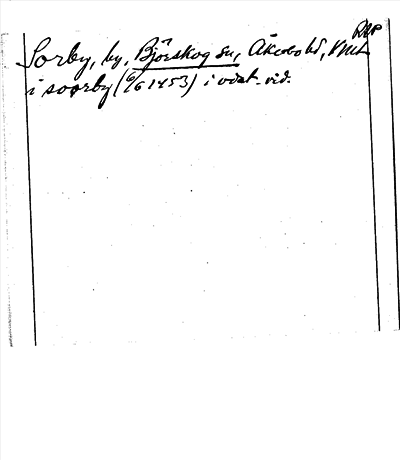 RAP
Sorby, by, Björskog sn, Åkerbo hd, Vml
i soorby (6/6 1453) i odat. vid.